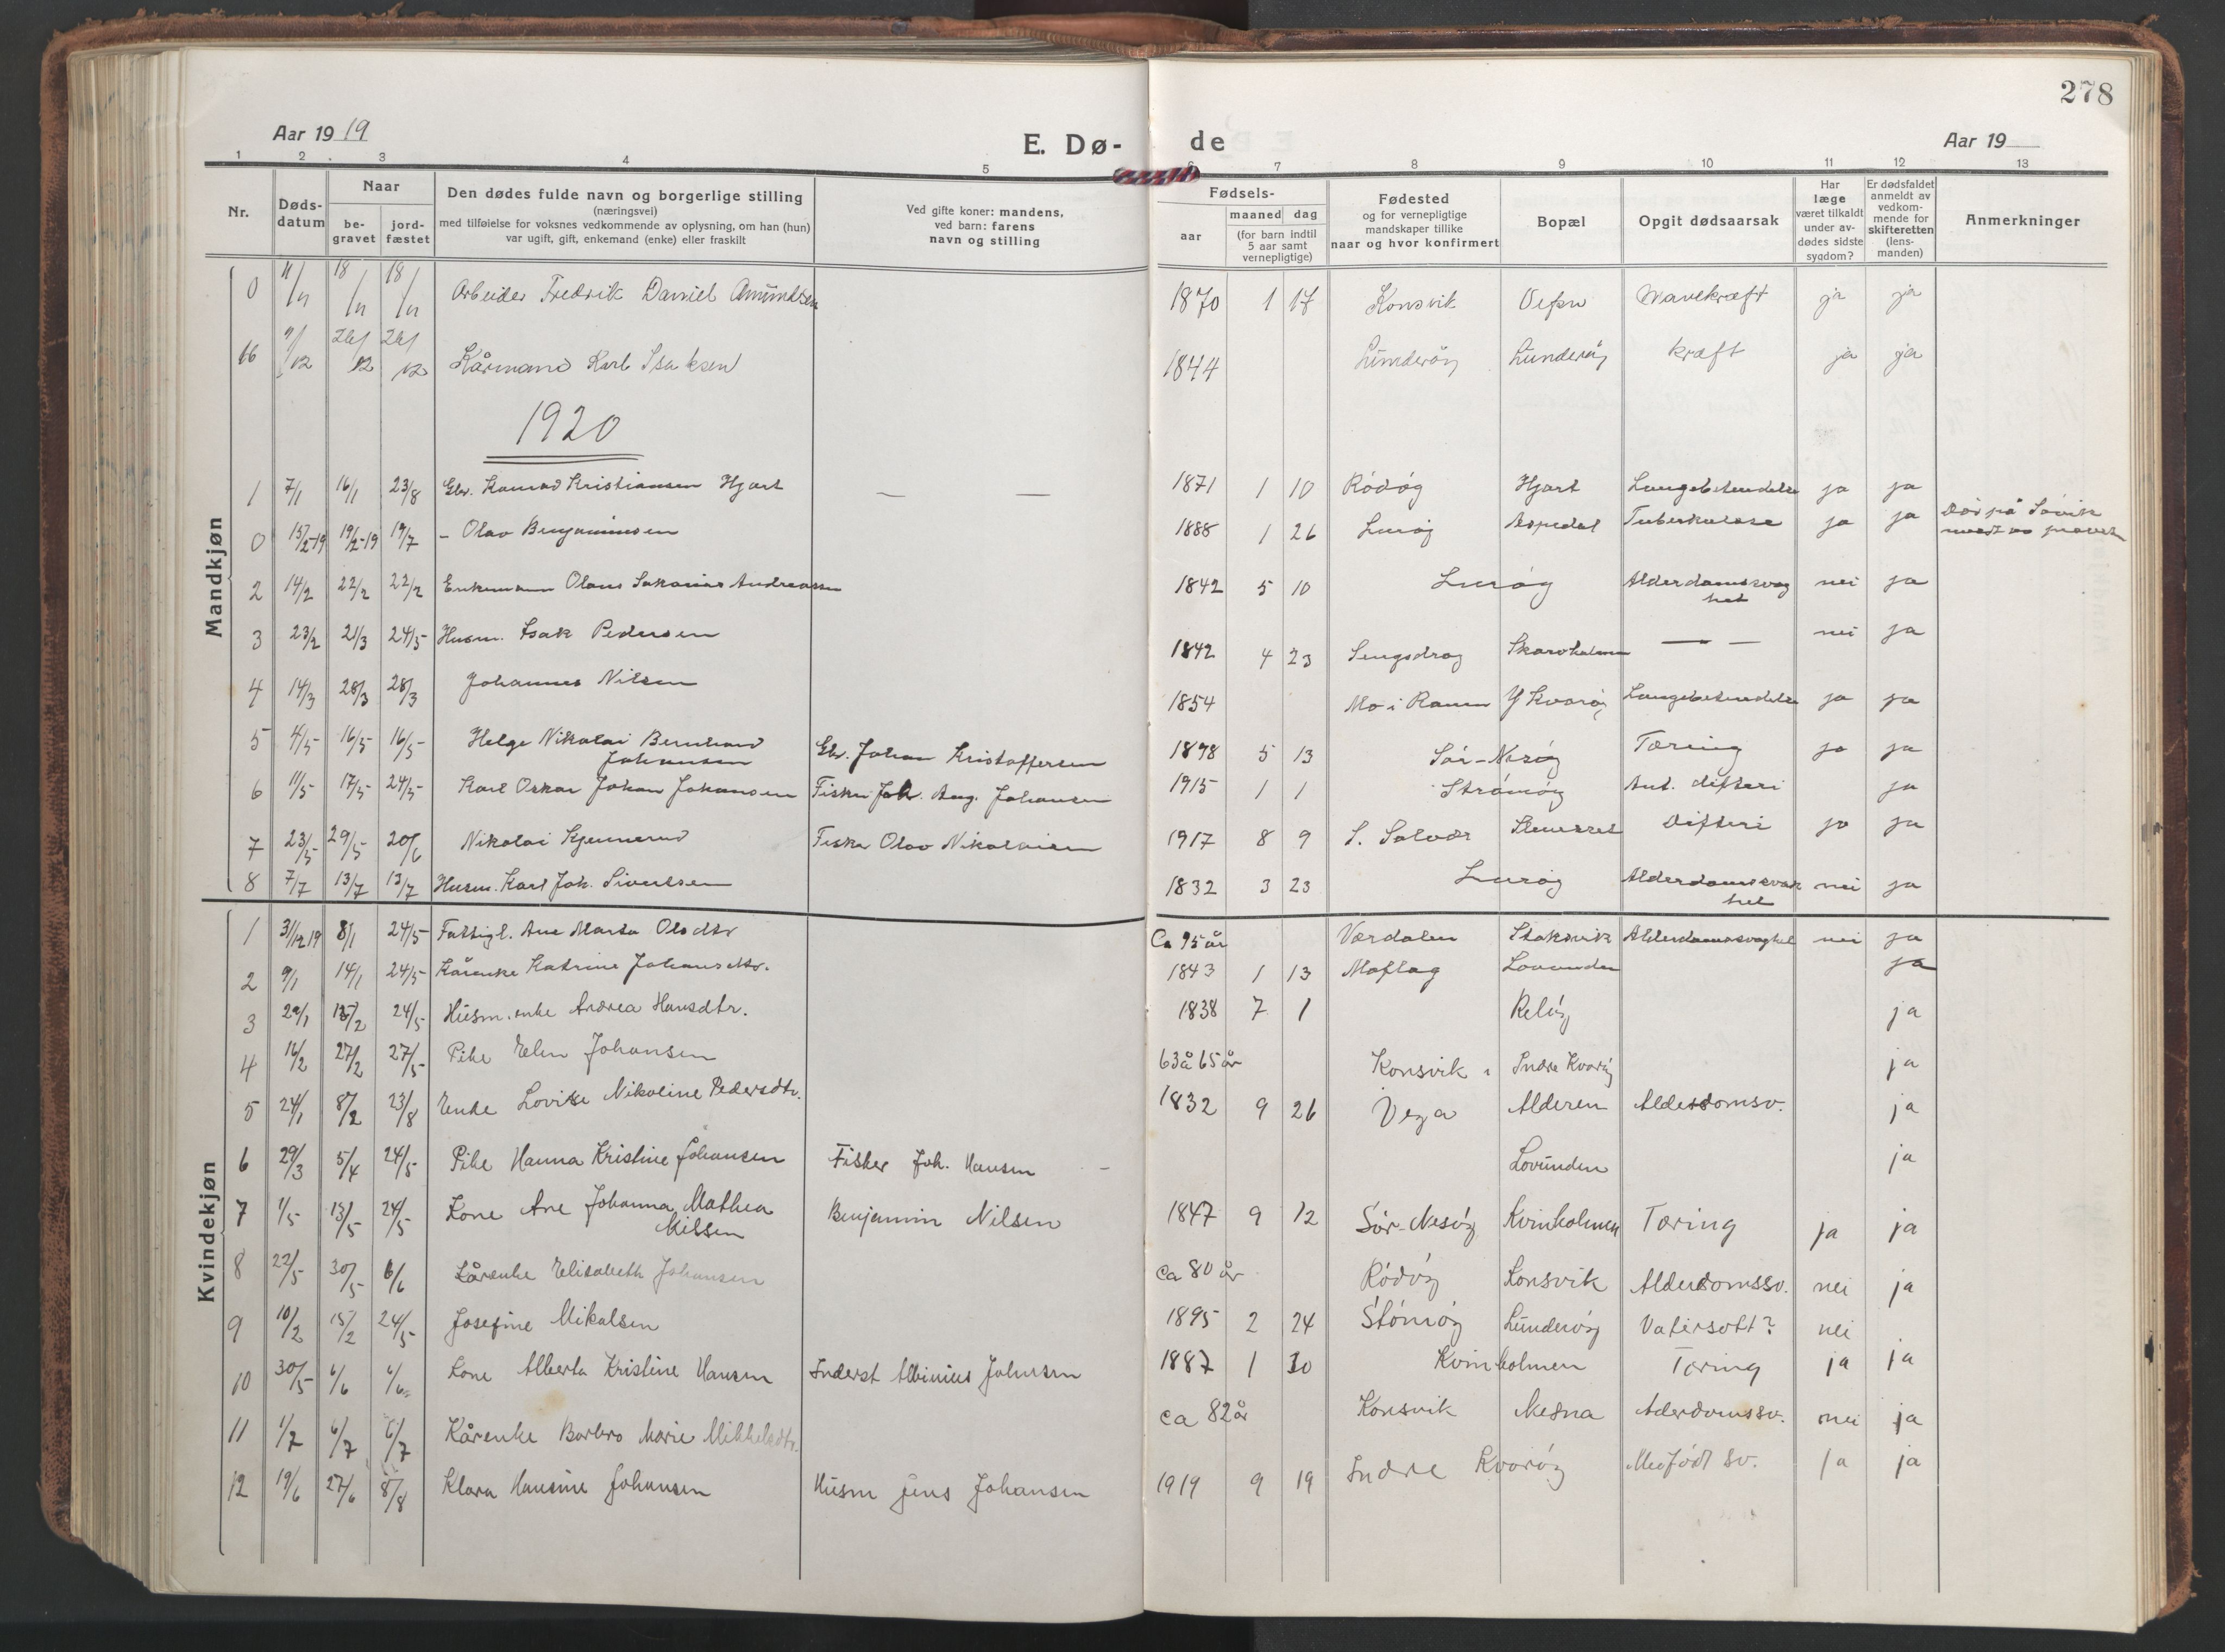 278
Aar 1919
E. Dø-de
Aar 19
1 2 3 4 5 6 7 8 9 10 11 12 13
Nr.
Døds-
datum
Naar
be-
gravet
jord-
fæstet
Den dødes fulde navn og borgerlige stilling
(næringsvei)
med tilføielse for voksnes vedkommende av oplysning, om han (hun)
var ugift, gift, enkemand (enke) eller fraskilt
Ved gifte koner: mandens,
ved barn: farens
navn og stilling
Fødsels-
aar
maaned dag
(for barn indtil
5 aar samt
vernepligtige)
Fødested
og for vernepligtige
mandskaper tillike
naar og hvor konfirmert
Bopæl
Opgit dødsaarsak
Har
læge
været tilkaldt
under av-
dødes sidste
sygdom?
Er dødsfaldet
anmeldt av
vedkom-
mende for
skifteretten
(lens-
manden)
Anmerkninger
Mandkjøn
0 11/11 18/11 18/11 Arbeider Fredrik Daniel Amundsen 1870 1 17 Konsvik Vefsn Mavekræft ja ja
16 /12 /12 /12 Kårmand Karl Isaksen 1844 Lunderöy Lunderöy kræft ja ja
1920
1 7/1 16/1 23/8 Gbr. Konrad Kristiansen Hjart — — 1871 1 10 Rödöy Hjart Lungebetendelse ja ja
0 15/2-19 19/2-19 19/7 - Olav Benjaminsen 1888 1 26 Luröy Aspedal Tuberkulose ja ja Död på
2 14/2 22/2 22/2 Enkemann Olaus Sakarias Andreassen 1842 5 10 Luröy Alderdomssvag
het nei ja
3 23/2 21/3 24/5 Husm. Isak Pedersen 1842 4 23 Sengsdrag Skarvholmen — — nei ja
4 14/3 28/3 28/3 Johannes Nilsen 1854 Mo i Ranen Y Kvaröy Lungebetendelse ja ja
5 4/5 16/5 16/5 Helge Nikolai Bernhard
Johansen Gbr. Johan Kristoffersen 1898 5 13 Sör-Nesöy Tæring ja ja
6 11/5 17/5 24/5 Karl Oskar Johan Johansen Fisker Joh. Aug. Johansen 1915 1 1 Strömöy Ant. difteri ja
7 23/5 29/5 20/6 Nikolai Kjennerud Fisker Olav Nikolaisen 1917 8 9 S. Solvær Difteri ja ja
8 7/7 13/7 13/7 Husm. Karl Joh. Sivertsen 1832 3 23 Luröy Alderdomssvak
het nei ja
Kvindekjøn
1 31/12 19 8/1 24/5 Fattigl. Ane Marta Olsdtr Ca 95 år Værdalen Stoksvik Alderdomssvaghet nei ja
2 9/1 14/1 24/5 Kårenke Katrine Johansdtr. 1843 1 13 Moflag Lovunden ja
3 29/1 15/2 24/5 Husm. enke Andrea Hansdtr. 1838 7 1 Relöy ja
4 16/2 27/2 27/5 Pike Elen Johansen 63 à 65 år Konsvik Indre Kvaröy ja
5 24/1 8/2 23/8 Enke Lovise Nikoline Pedersdtr. 1832 9 26 Vega Alderen Alderdomsv. ja
6 29/3 5/4 24/5 Pike Hanna Kristine Johansen Fisker Joh. Hansen - Lovunden ja
7 1/5 13/5 24/5 Kone Ane Johanna Mathea
Nilsen Benjamin Nilsen 1847 9 12 Sör-Nesöy Kvinholmen Tæring ja ja
8 22/5 30/5 6/6 Kårenke Elisabeth Johansen ca 80 år Rödöy Konsvik Alderdomssv. nei ja
9 10/2 15/2 24/5 Josefine Mikalsen 1895 2 24 Stömöy Lunderöy Vatersott? nei
10 30/5 6/6 6/6 Kone Alberta Kristine Hansen Inderst Albinius Johnsen 1887 1 30 Kvinholmen Tæring ja ja
11 1/7 6/7 6/7 Kårenke Barbro Marie Mikkelsdtr. ca 82 år Konsvik Nesna Alderdomssv. nei ja
12 19/6 27/6 8/8 Klara Hansine Johansen Husm Jens Johansen 1919 9 19 Indre Kvaröy Medfödt sv. Ja ja